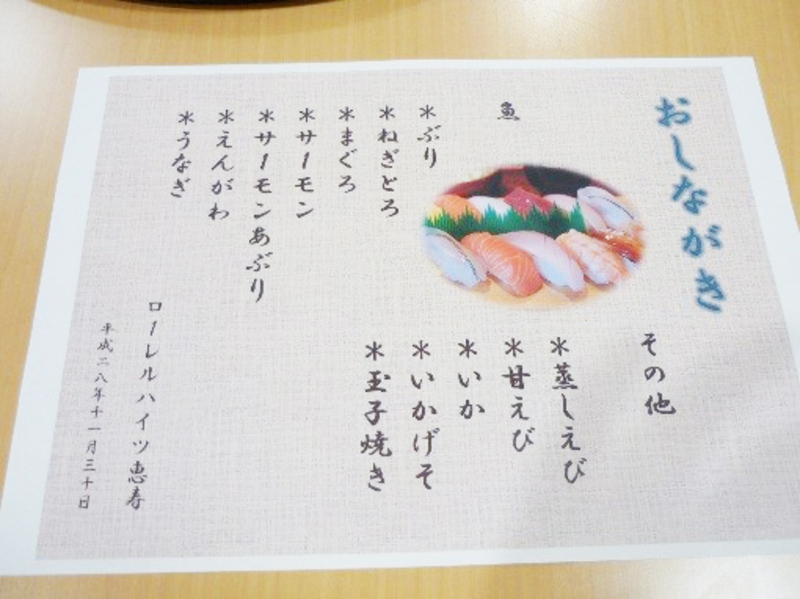 おしながき
魚
＊ぶり
＊ねぎとろ
＊まぐろ
＊サーモン
＊サーモンあぶり
＊えんがわ
＊うなぎ
その他
＊蒸しえび
＊甘えび
＊いか
＊いかげそ
＊玉子焼き
ローレルハイツ恵寿
平成二八年十一月三十日